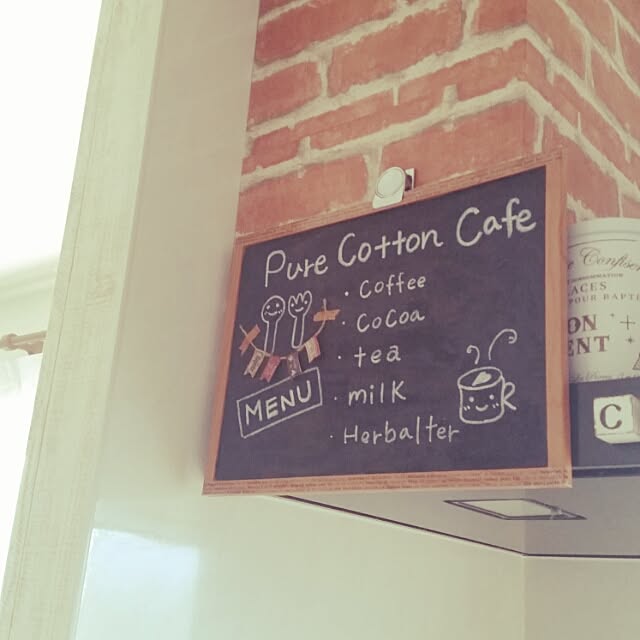 Pure Cotton Cafe
· Coffee
· CoCoa
· tea
· milk
· Herbalter
MENU
Confise
ACES
POUR BAPT
ON
ENT
C